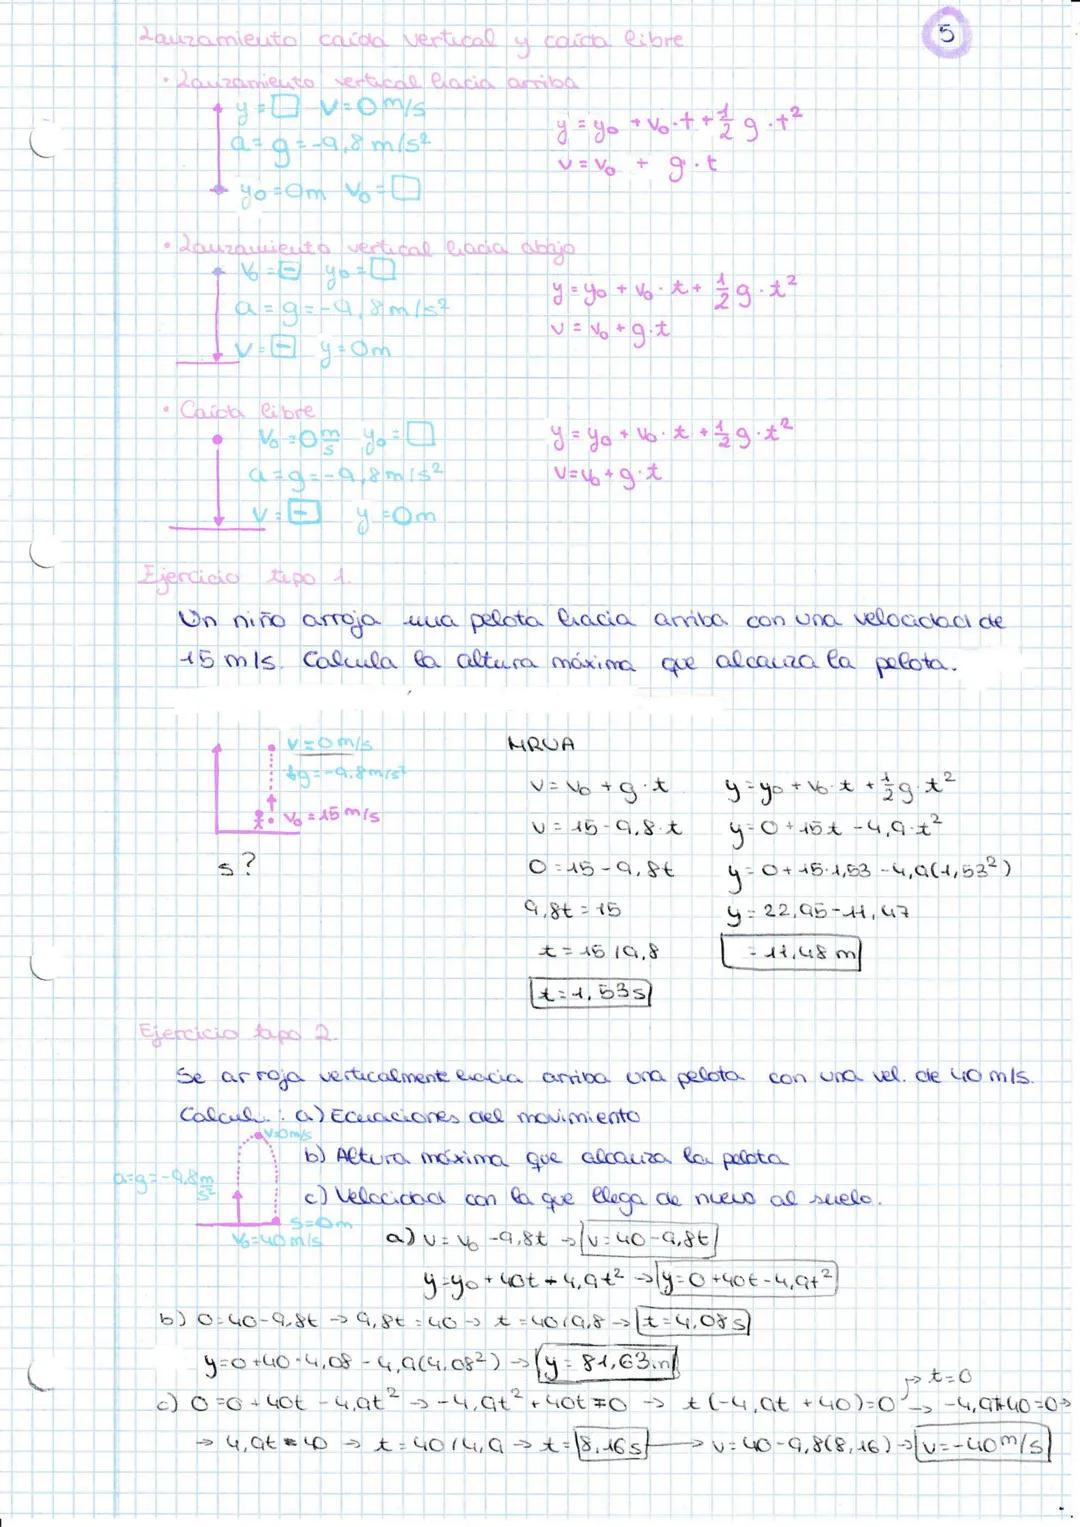 Lanzamiento caída vertical y caída libre
5
• Lanzamiento vertical hacia arriba
y=□ v=0m/s
a=g=-9,8 m/s²
y₀=0m v₀=□
y = y₀ + v₀·t + 1/2 g·t²
v = v₀ + g·t
• Lanzamiento vertical hacia abajo
v₀=⊟ y₀=□
a=g=-9,8m/s²
v=⊟ y=0m
y = y₀ + v₀·t + 1/2 g·t²
v = v₀ + g·t
• Caída libre
v₀=0 m/s y₀=□
a=g=-9,8m/s²
v=⊟ y=0m
y = y₀ + v₀·t + 1/2 g·t²
v=v₀+g·t
Ejercicio tipo 1.
Un niño arroja una pelota hacia arriba con una velocidad de
15 m/s. Calcula la altura máxima que alcanza la pelota.
v=0m/s
g=-9.8m/s²
v₀=15 m/s
s?
MRUA
v= v₀ + g·t
v = 15-9,8·t
0=15-9,8t
9,8t=15
t=15/9,8
t=1,53s
y=y₀+v₀·t+1/2 g·t²
y=0+15t-4,9·t²
y=0+15·1,53-4,9(1,53²)
y=22,95-11,47
=11,48 m
Ejercicio tipo 2.
Se arroja verticalmente hacia arriba una pelota con una vel. de 40 m/s.
Calcul.: a) Ecuaciones del movimiento
b) Altura máxima que alcanza la pelota
c) Velocidad con la que llega de nuevo al suelo.
v=0m/s
a=g=-9,8 m/s²
s=0m
v₀=40m/s
a) v= v₀ -9,8t → v=40-9,8t
y=y₀+40t-4,9t² → y=0+40t-4,9t²
b) 0=40-9,8t → 9,8t=40 → t=40/9,8 → t=4,08s
y=0+40·4,08-4,9(4,08²) → y=81,63m
c) 0=0+40t-4,9t² → -4,9t²+40t=0 → t(-4,9t+40)=0 → t=0 → -4,9t+40=0 →
→ 4,9t=40 → t=40/4,9 → t=8,16s → v=40-9,8(8,16) → v=-40m/s